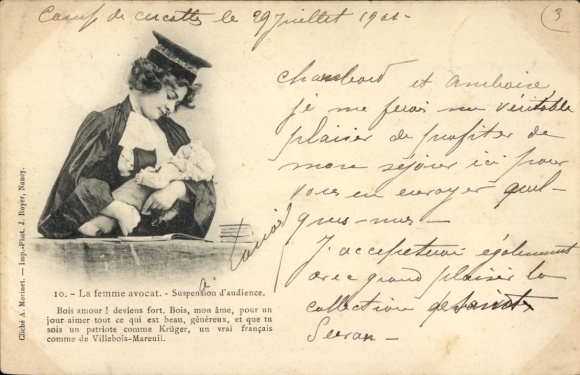 Camp de cercottes le 29 Juillet 1901 -
3
Chambord et Amboise,
je me ferais un veritable
plaisir de profiter de
mon séjour ici pour
vous en envoyer quel-
ques-unes -
J'accepterai également
avec grand plaisir la
collection de
à
10. - La femme avocat. - Suspension d'audience.
Bois amour ! deviens fort. Bois, mon âme, pour un
jour aimer tout ce qui est beau, généreux, et que tu
sois un patriote comme Krüger, un vrai français
comme de Villebois-Mareuil.
Cliché A. Morinet. — Imp.-Phot. J. Royer, Nancy.